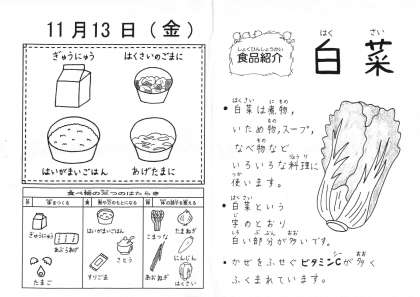 11月13日(金)
ぎゅうにゅう
はくさいのごまに
はいがまいごはん
あげたまに
食べ物の三つのはたらき
ぎゅうにゅう
あぶらあげ
たまご
はいがまいごはん
さとう
すりごま
こまつな
たまねぎ
にんじん
あおねぎ
はくさい
しょくひんしょうかい
食品紹介
はく さい
白菜
はくさい にもの
• 白菜は煮物,
もの
いため物,スープ,
なべ物など
りょうり
いろいろな料理に
つか
使います。
はくさい
• 白菜という
じ
字のとおり
しろ ぶぶん おお
白い部分が多いです。
• かぜをふせぐビタミンCが多く
ふくまれています。